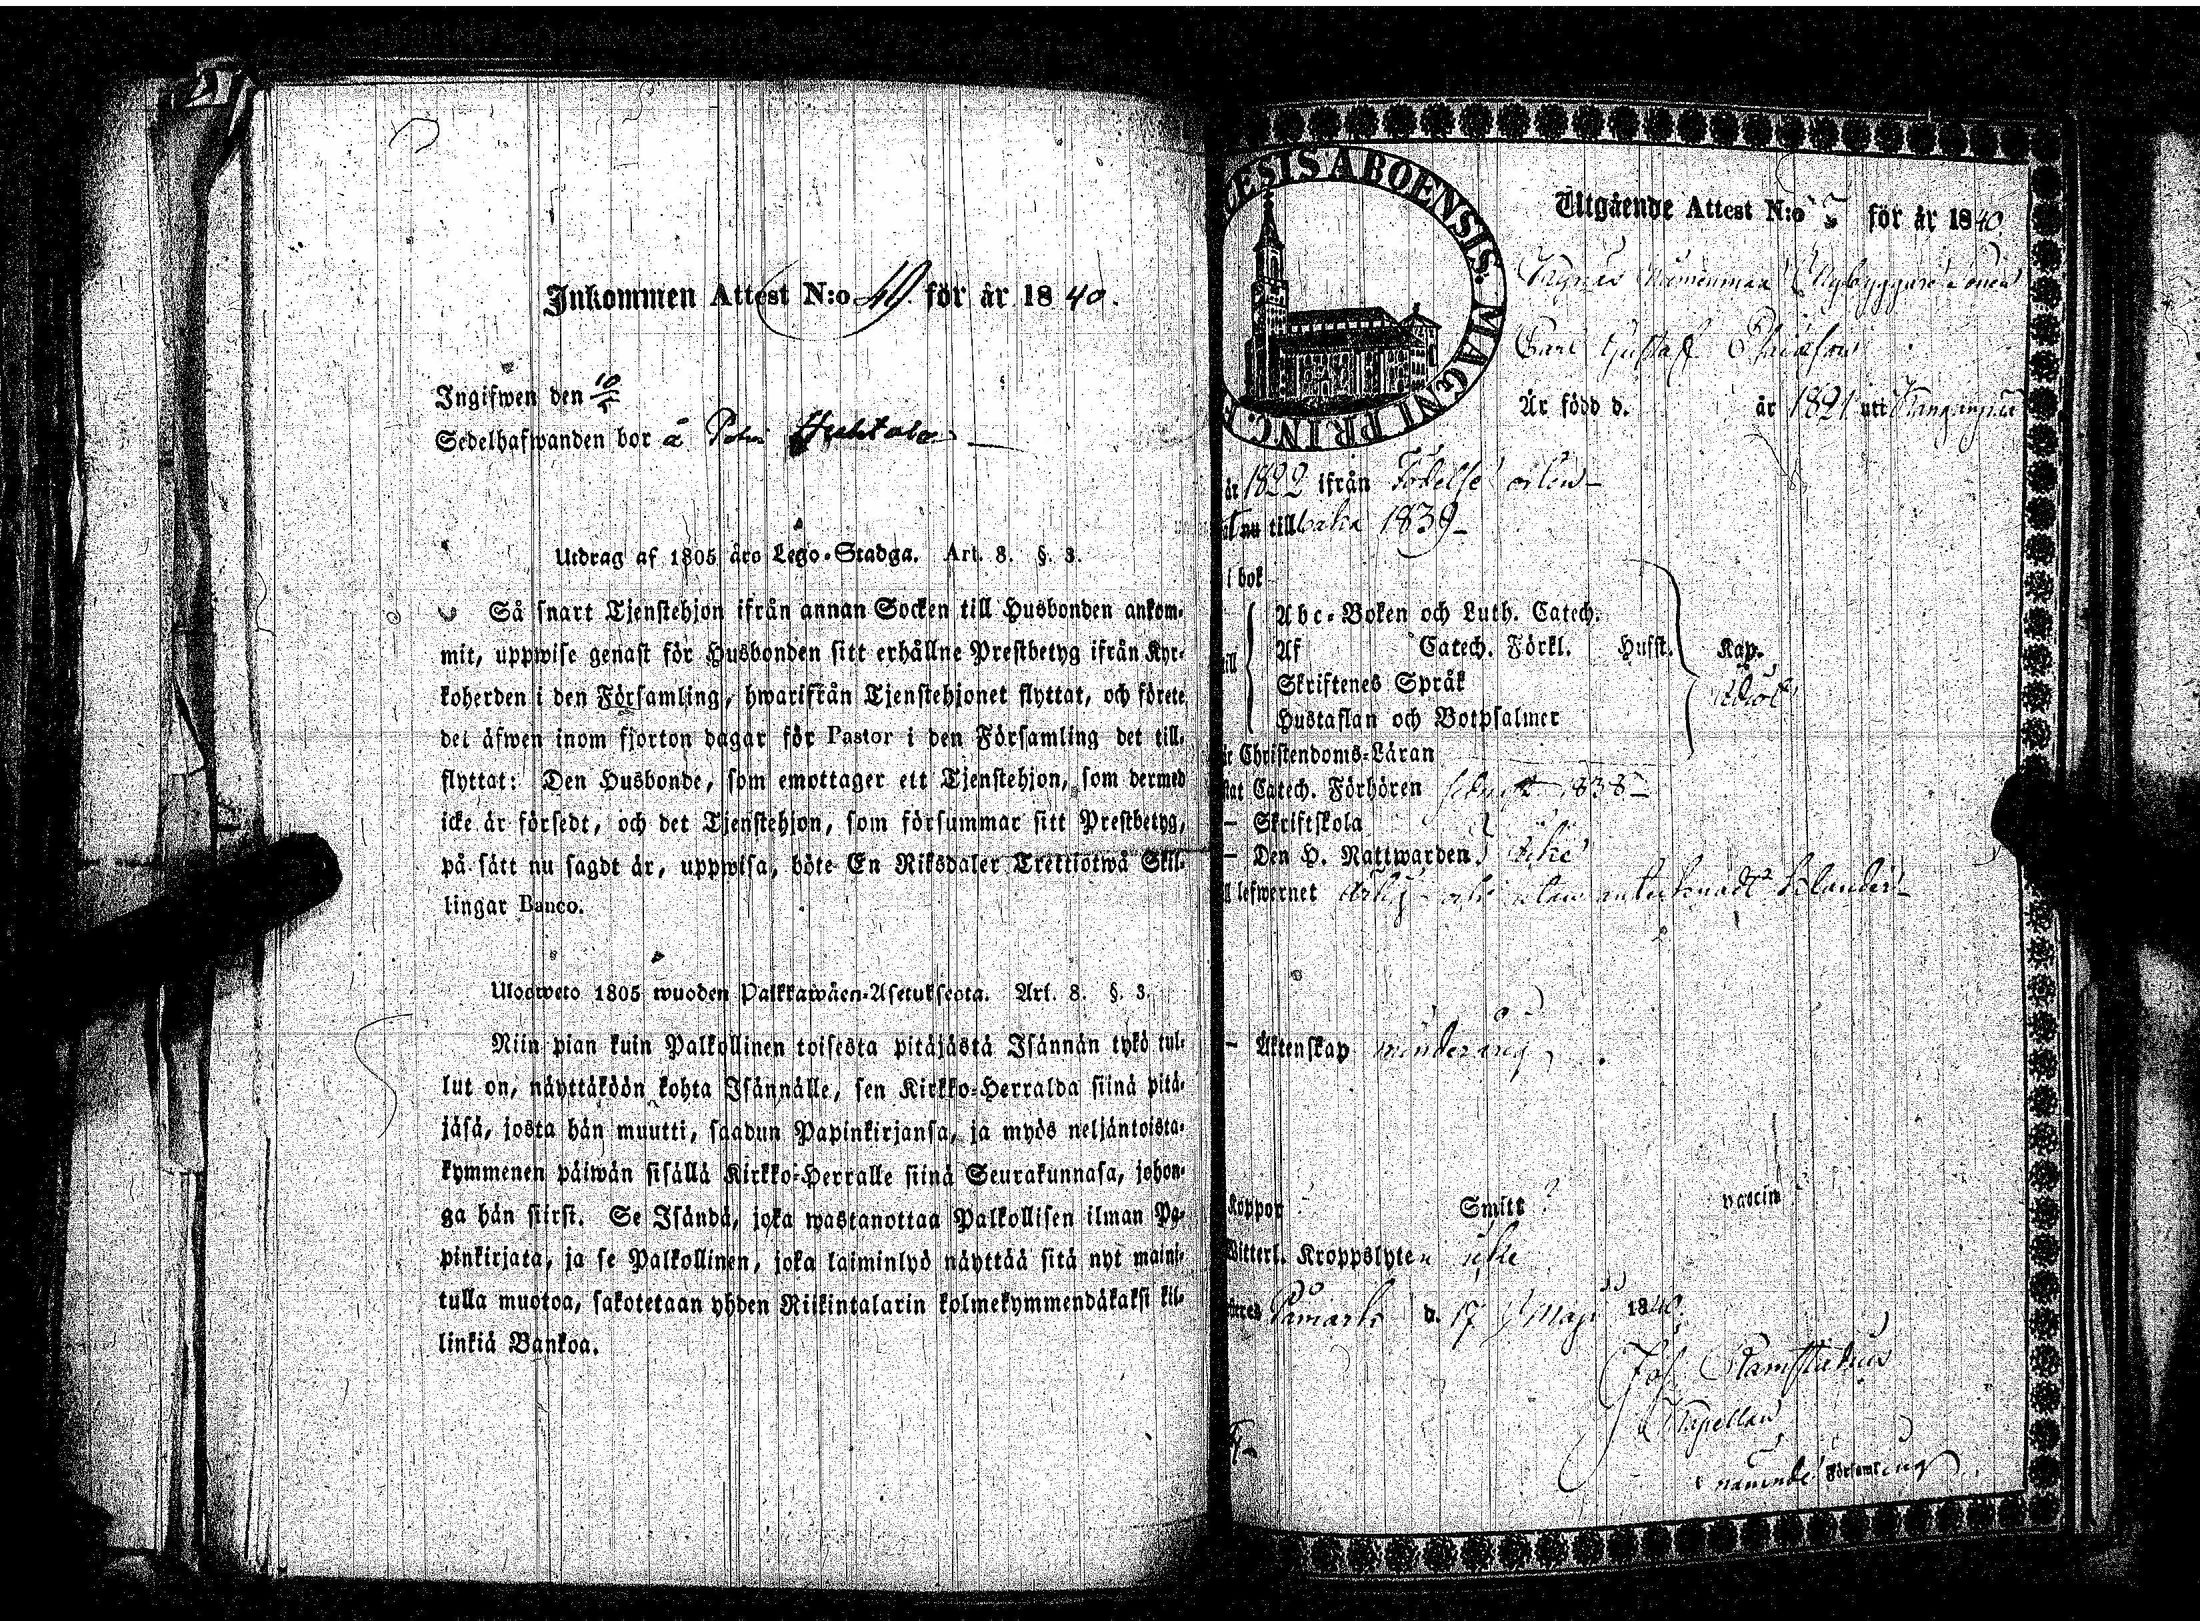 Inkommen Attest N:o 40. för år 1840.
Ingifwen den 10/5
Sedelhafwanden bor å
Utdrag af 1805 års Lego-Stadga. Art. 8. §. 3.
Så snart Tjenstehjon ifrån annan Socken till Husbonden ankom-
mit, uppwise genast för Husbonden sitt erhållne Prestbetyg ifrån Kyr-
koherden i den Församling, hwarifrån Tjenstehjonet flyttat, och förete
det äfwen inom fjorton dagar för Pastor i den Församling det till-
flyttat: Den Husbonde, som emottager ett Tjenstehjon, som dermed
icke är försedt, och det Tjenstehjon, som försummar sitt Prestbetyg,
på sätt nu sagdt är, uppwisa, böte En Riksdaler Trettiotwå Skil-
lingar Banco.
Ulosweto 1805 wuoden Palkkawäen-Asetuksesta. Art. 8. §. 3.
Niin pian kuin Palkollinen toisesta pitäjästä Isännän tykö tul-
lut on, näyttäköön kohta Isännälle, sen Kirkko-Herralda siinä pitä-
jäsä, josta hän muutti, saadun Papinkirjansa, ja myös neljäntoista-
kymmenen päiwän sisällä Kirkko-Herralle siinä Seurakunnasa, johon-
ga hän siirsi. Se Isändä, joka wastanottaa Palkollisen ilman Pa-
pinkirjata, ja se Palkollinen, joka laiminlyö näyttää sitä nyt maini-
tulla muotoa, sakotetaan yhden Riikintalarin kolmekymmendäkaksi kil-
linkiä Bankoa.
ESIS ABOENSIS. MAGNI PRINC.
Utgående Attest N:o 5 för år 1840
Nybyggare Sonen
Carl Gustaf
Är född d. år 1821 uti
år 1822 ifrån Födelse orten
nu tillbaka 1839
i bok
Abc-Boken och Luth. Catech.
Af Catech. Förkl. Husst. Kap.
Skriftenes Språk
Hustaflan och Botpsalmer
Christendoms-Läran
Catech. Förhören sednast 1838
- Skriftskola
- Den H. Nattwarden icke
lefwernet ärlig och utan
- Äktenskap minderårig
Koppor Smitt vaccin
Witterl. Kroppslyten icke
Påmark d. 17 Maji 1840.
Joh.
Kapellan
Församling